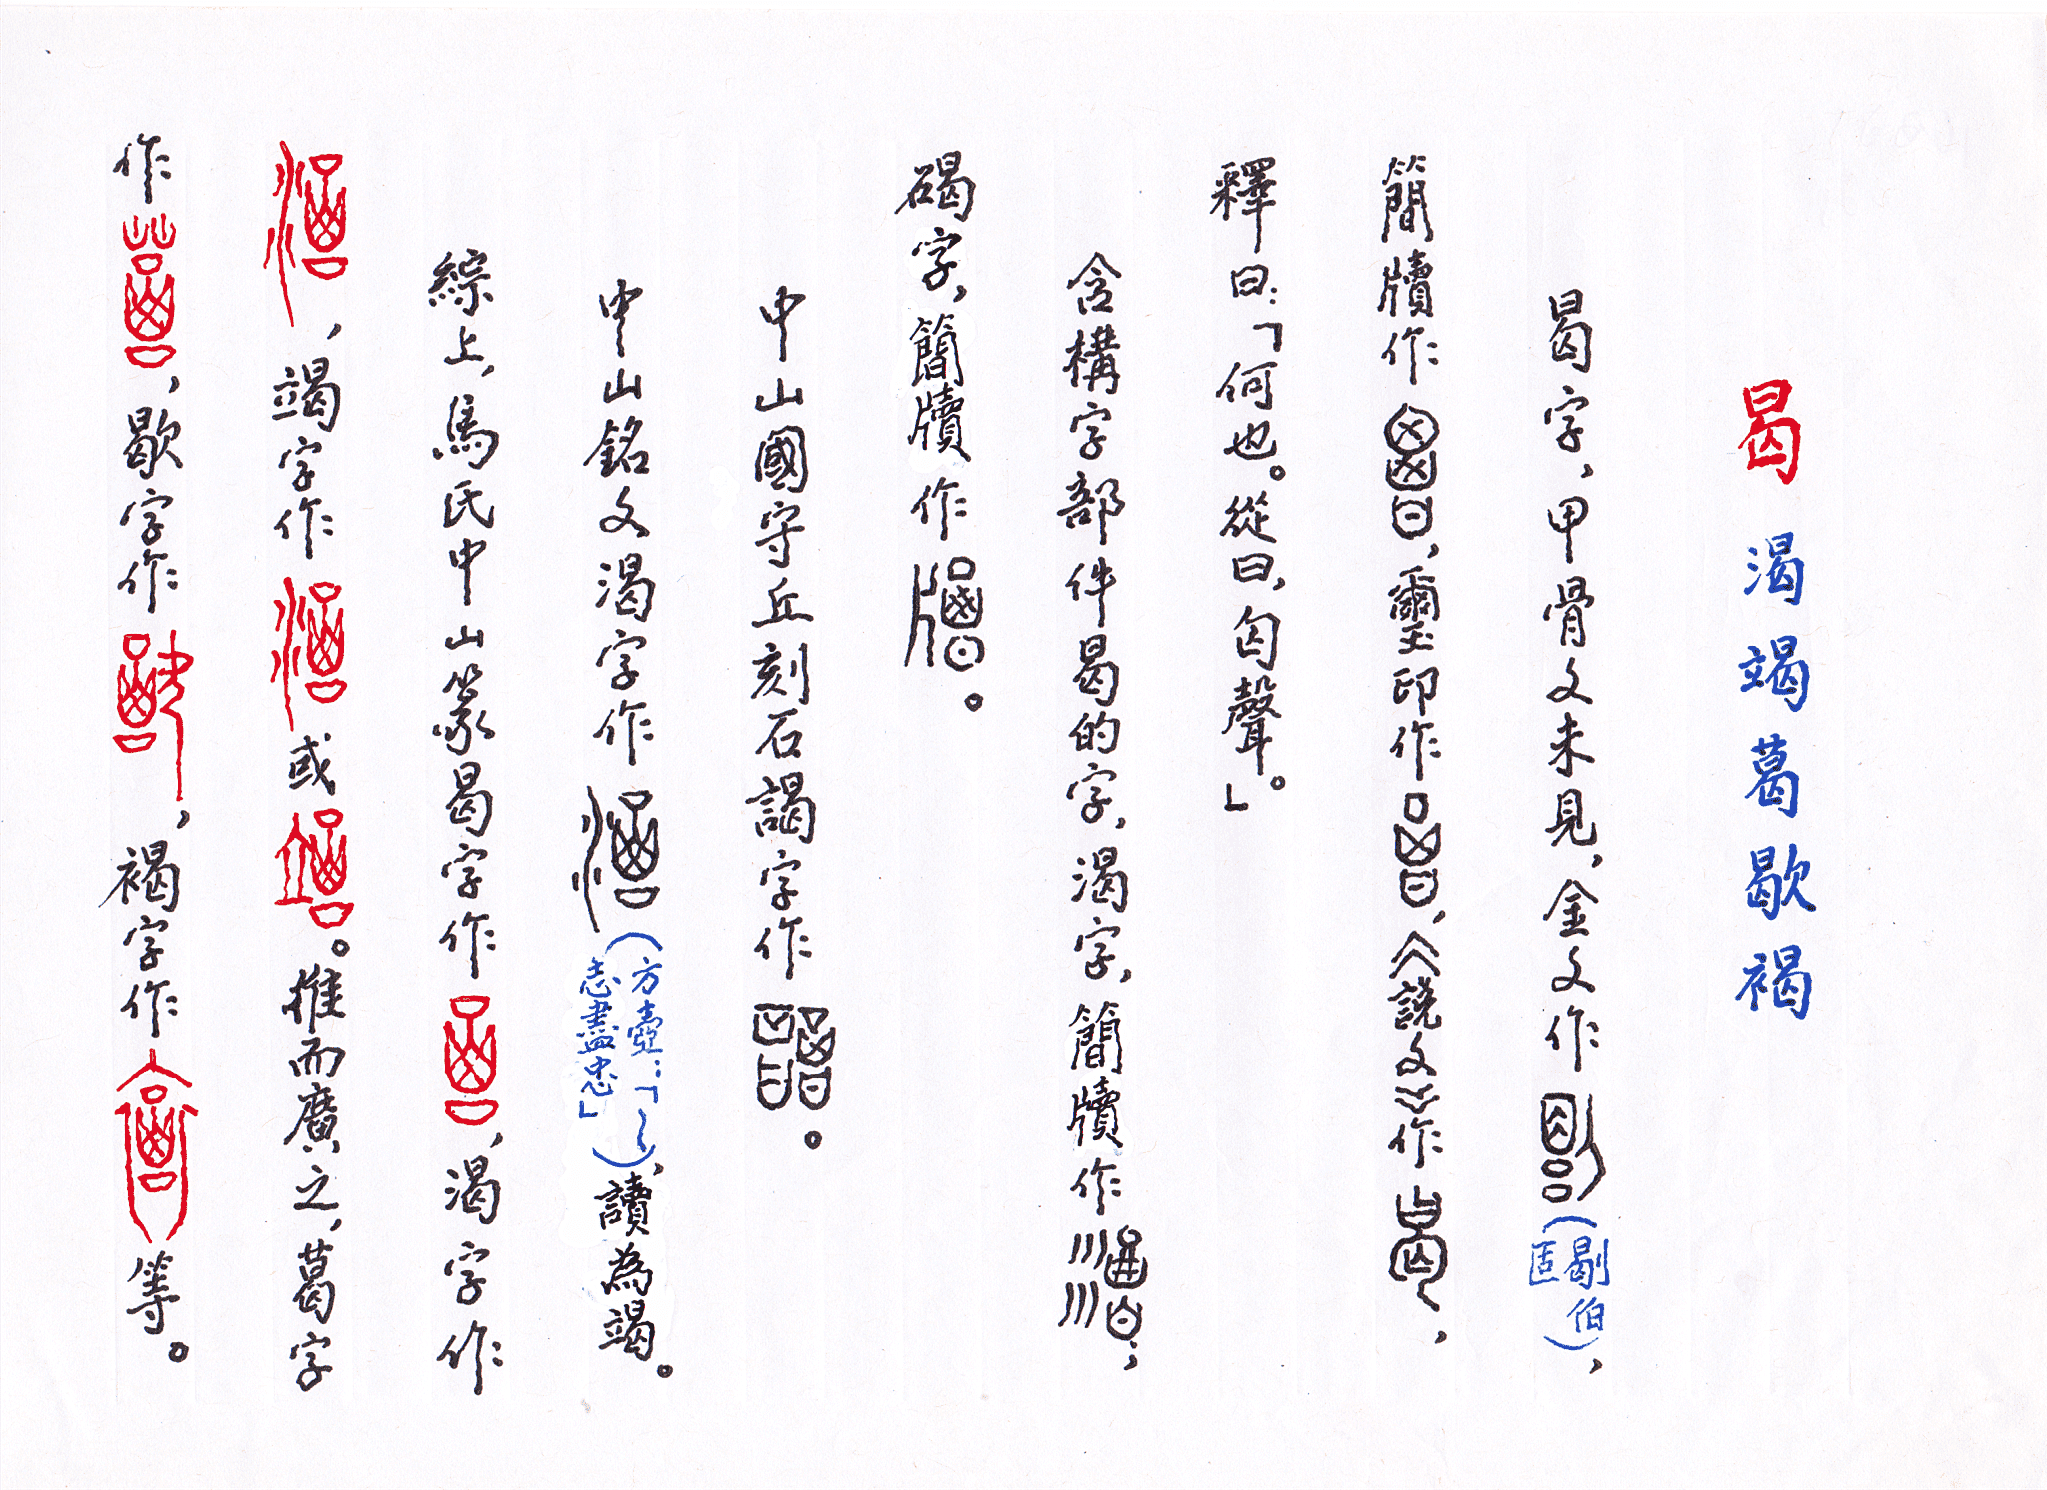 曷 渴竭葛歇褐
曷字，甲骨文未見，金文作（匃伯匿），
簡牘作，璽印作，《說文》作，
釋曰：「何也。從曰，匃聲。」
含構字部件曷的字，渴字，簡牘作；
碣字，簡牘作。
中山國守丘刻石謁字作。
中山銘文渴字作（方壺：「～志盡忠」），讀為竭。
綜上，馬氏中山篆曷字作，渴字作
，竭字作或。推而廣之，葛字
作，歇字作，褐字作等。